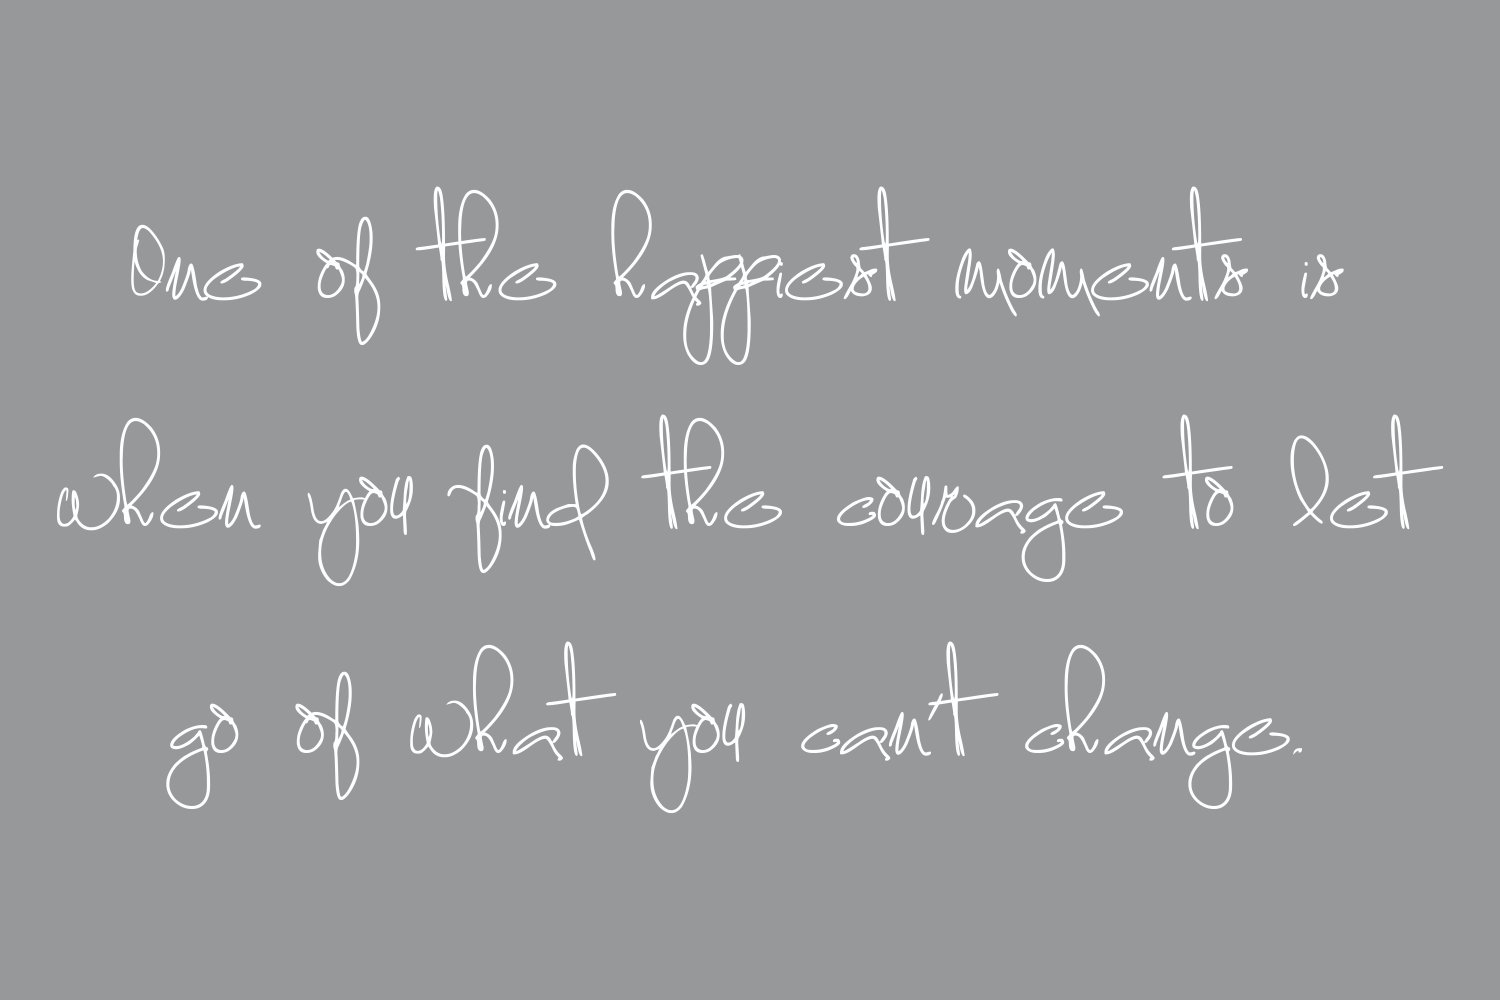 One of the happiest moments is
when you find the courage to let
go of what you can't change.